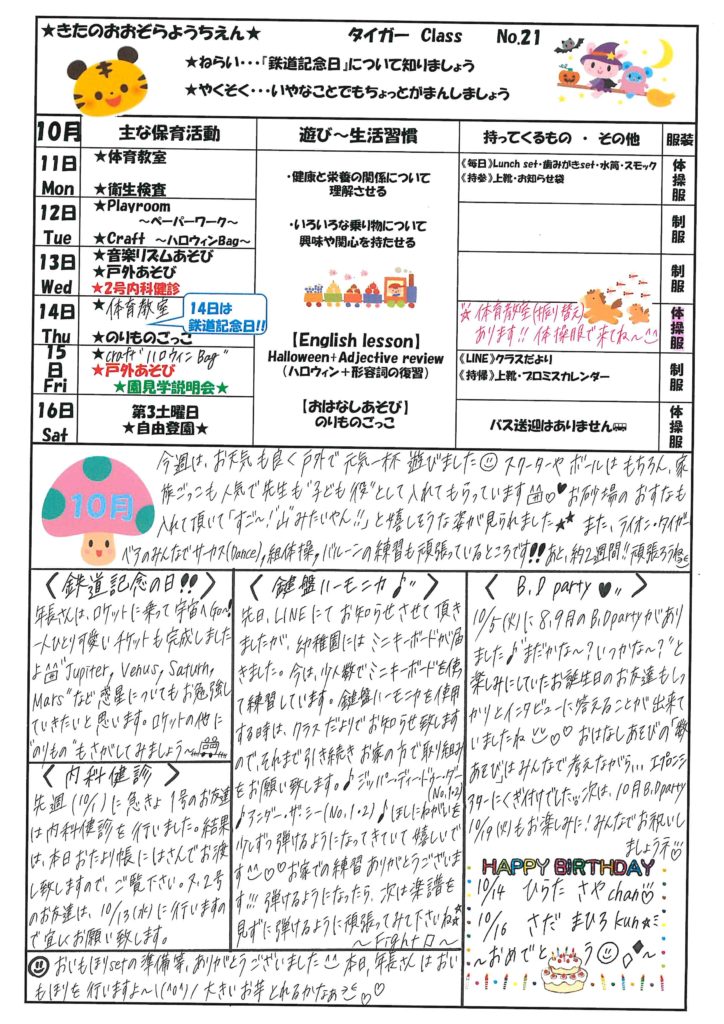 ★きたのおおぞらようちえん★ タイガー Class No.21
★ねらい・・・「鉄道記念日」について知りましょう
★やくそく・・・いやなことでもちょっとがまんしましょう
10月 主な保育活動 遊び～生活習慣 持ってくるもの ・ その他 服装
11日 Mon
★体育教室
★衛生検査
12日 Tue
★Playroom
～ペーパーワーク～
★Craft ～ハロウィンBag～
13日 Wed
★音楽リズムあそび
★戸外あそび
★2号内科健診
14日 Thu
★体育教室
14日は
鉄道記念日!!
★のりものごっこ
15日 Fri
★craft "ハロウィン Bag"
★戸外あそび
★園見学説明会★
16日 Sat
第3土曜日
★自由登園★
・健康と栄養の関係について
理解させる
・いろいろな乗り物について
興味や関心を持たせる
【English lesson】
Halloween+Adjective review
(ハロウィン+形容詞の復習)
【おはなしあそび】
のりものごっこ
《毎日》Lunch set・歯みがきset・水筒・スモック
《持参》上靴・お知らせ袋
体操服
制服
制服
体育教室(振り替え)
あります!! 体操服で来てね～^^
体操服
《LINE》クラスだより
《持帰》上靴・プロミスカレンダー
制服
バス送迎はありません
体操服
10月
今週は、お天気も良く戸外で元気一杯 遊びました☺ スクーターや ボールは もちろん、家
族ごっこも人気で先生も"子ども役"として入れてもらっています♥ お砂場の おすなも
入れて頂いて「すご～い!山みたいやん!!」と嬉しそうな姿が見られました★★ また、ライオン・タイガー
ペアのみんなでサーカス(Dance)、組体操、バルーンの練習も頑張っているところです!! あと、約2週間!!頑張ろうね
〈鉄道記念の日!!〉
年長さんは、ロケットに乗って宇宙へGo～!
一人ひとり可愛いチケットも完成しました
よ "Jupiter, Venus, Saturn,
Mars"など惑星についてもお勉強し
ていきたいと思います。ロケットの他に
"のりもの"もさがしてみましょう～
〈内科健診〉
先週(10/1)に急きょ 1号のお友達
は内科健診を行いました。結果
は、本日おたより帳にはさんでお渡
し致しますので、ご覧下さい。又、2号
のお友達は、10/13(水)に行いますの
で宜しくお願い致します。
〈鍵盤ハーモニカ♪〉
先日、LINEにて お知らせさせて頂き
ましたが、幼稚園には ミニキーボードが届
きました。今は、少人数でミニキーボードを使っ
て練習しています。鍵盤ハーモニカを使用
する時は、クラスだよりでお知らせ致します
ので、それまで引き続きお家の方で取り組み
をお願い致します。♪ジッパーディードゥーダー(No.1・2)
♪アンダー・ザ・シー(No.1・2) ♪ほしにねがいを
少しずつ弾けるようになってきていて嬉しいで
す^^♡♡お家での練習ありがとうございま
す!!! 弾けるようになったら、次は楽譜を
見ずに弾けるように頑張ってみて下さいね★
～Fight～
〈B.D party♥〉
10/5(火)に8,9月のB.Dpartyがあり
ました♪"まだかな～?いつかな～?"と
楽しみにしていたお誕生日のお友達もしっ
かりとインタビューに答えることが出来て
いましたね♡♡ おはなしあそびの「数
あそび」はみんなで考えながら、、、エプロンシ
アターにくぎ付けでしたッ。次は、10月B.Dparty
10/19(火)もお楽しみに!みんなでお祝いし
ましょうネ
HAPPY BIRTHDAY
10/14 ひらた さやchan
10/16 さだ まひろkun★
～おめでとう☺
☺おいもほりsetの準備等、ありがとうございました^^ 本日、年長さんは おい
もほりを行いますよ～\(^o^)/ 大きいお芋とれるかなぁ♡